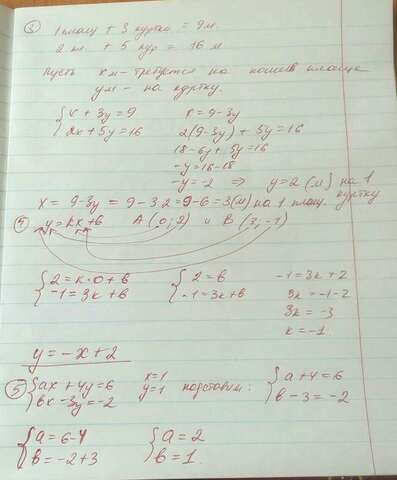 ③ 1 плащ + 3 куртки = 9 м.
2 пл. + 5 кур = 16 м
Пусть x м - требуется на пошив плаща
y м - на куртку.
{x + 3y = 9
2x + 5y = 16
x = 9 - 3y
2(9 - 3y) + 5y = 16
18 - 6y + 5y = 16
-y = 16 - 18
-y = -2 ⇒ y = 2 (м) на 1 куртку
x = 9 - 3y = 9 - 3·2 = 9 - 6 = 3(м) на 1 плащ.
④ y = kx + b A (0; 2) и B (3; -1)
{2 = k·0 + b
-1 = 3k + b
{2 = b
-1 = 3k + b
-1 = 3k + 2
3k = -1 - 2
3k = -3
k = -1
y = -x + 2
⑤ {ax + 4y = 6
bx - 3y = -2
x = 1
y = 1 подставим:
{a + 4 = 6
b - 3 = -2
{a = 6 - 4
b = -2 + 3
{a = 2
b = 1.